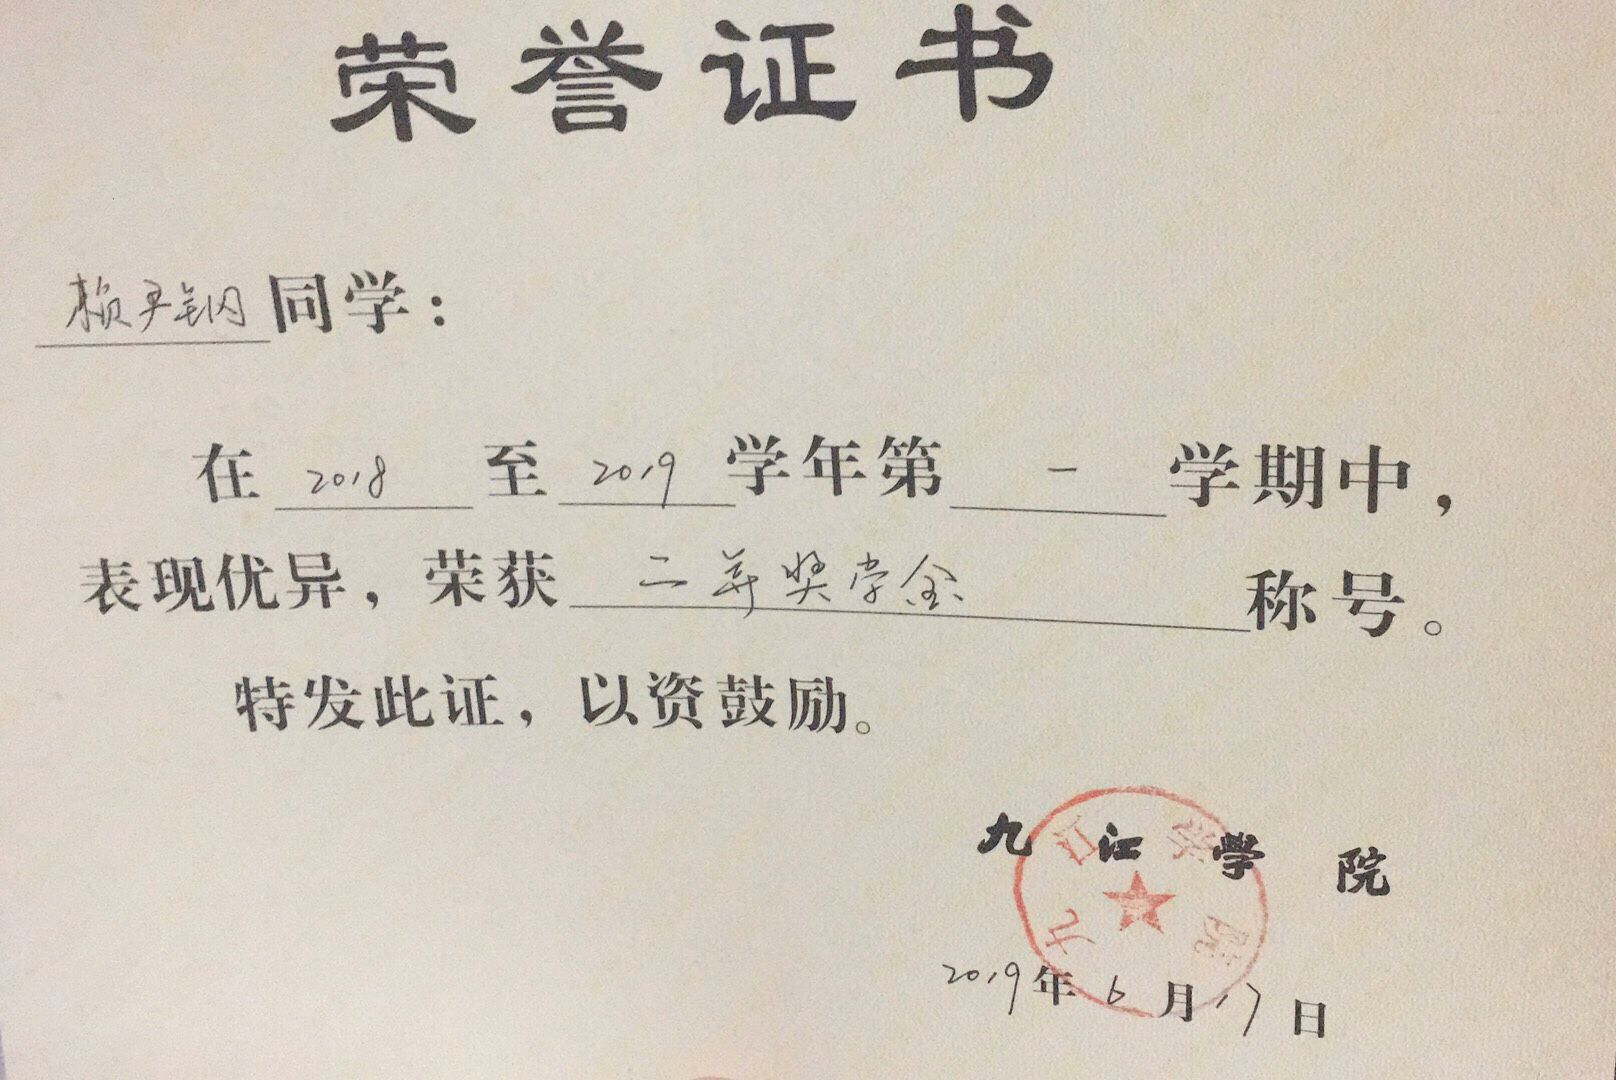 荣誉证书
赖 同学：
在 2018 至 2019 学年第 一 学期中，
表现优异，荣获 二等奖学金 称号。
特发此证，以资鼓励。
九江学院
九江学院
2019年6月17日